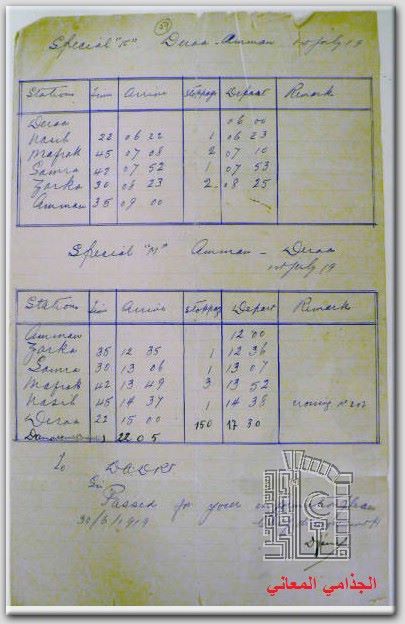 Special "K" Deraa - Amman 1st July 19
Stations Time Arrive Stoppage Depart Remark
Deraa 06 00
Nasib 22 06 22 1 06 23
Mafrak 45 07 08 2 07 10
Samra 42 07 52 1 07 53
Zarka 30 08 23 2 08 25
Amman 35 09 00
Special "M" Amman - Deraa
1st July 19
Stations Time Arrive Stoppage Depart Remark
Amman 12 00
Zarka 35 12 35 1 12 36
Samra 30 13 06 1 13 07
Mafrak 42 13 49 3 13 52
Nasib 45 14 37 1 14 38
Deraa 22 15 00 150 17 30
22 05
To
Sir
Passed for your information
30/6/1919
الجذامي المعاني